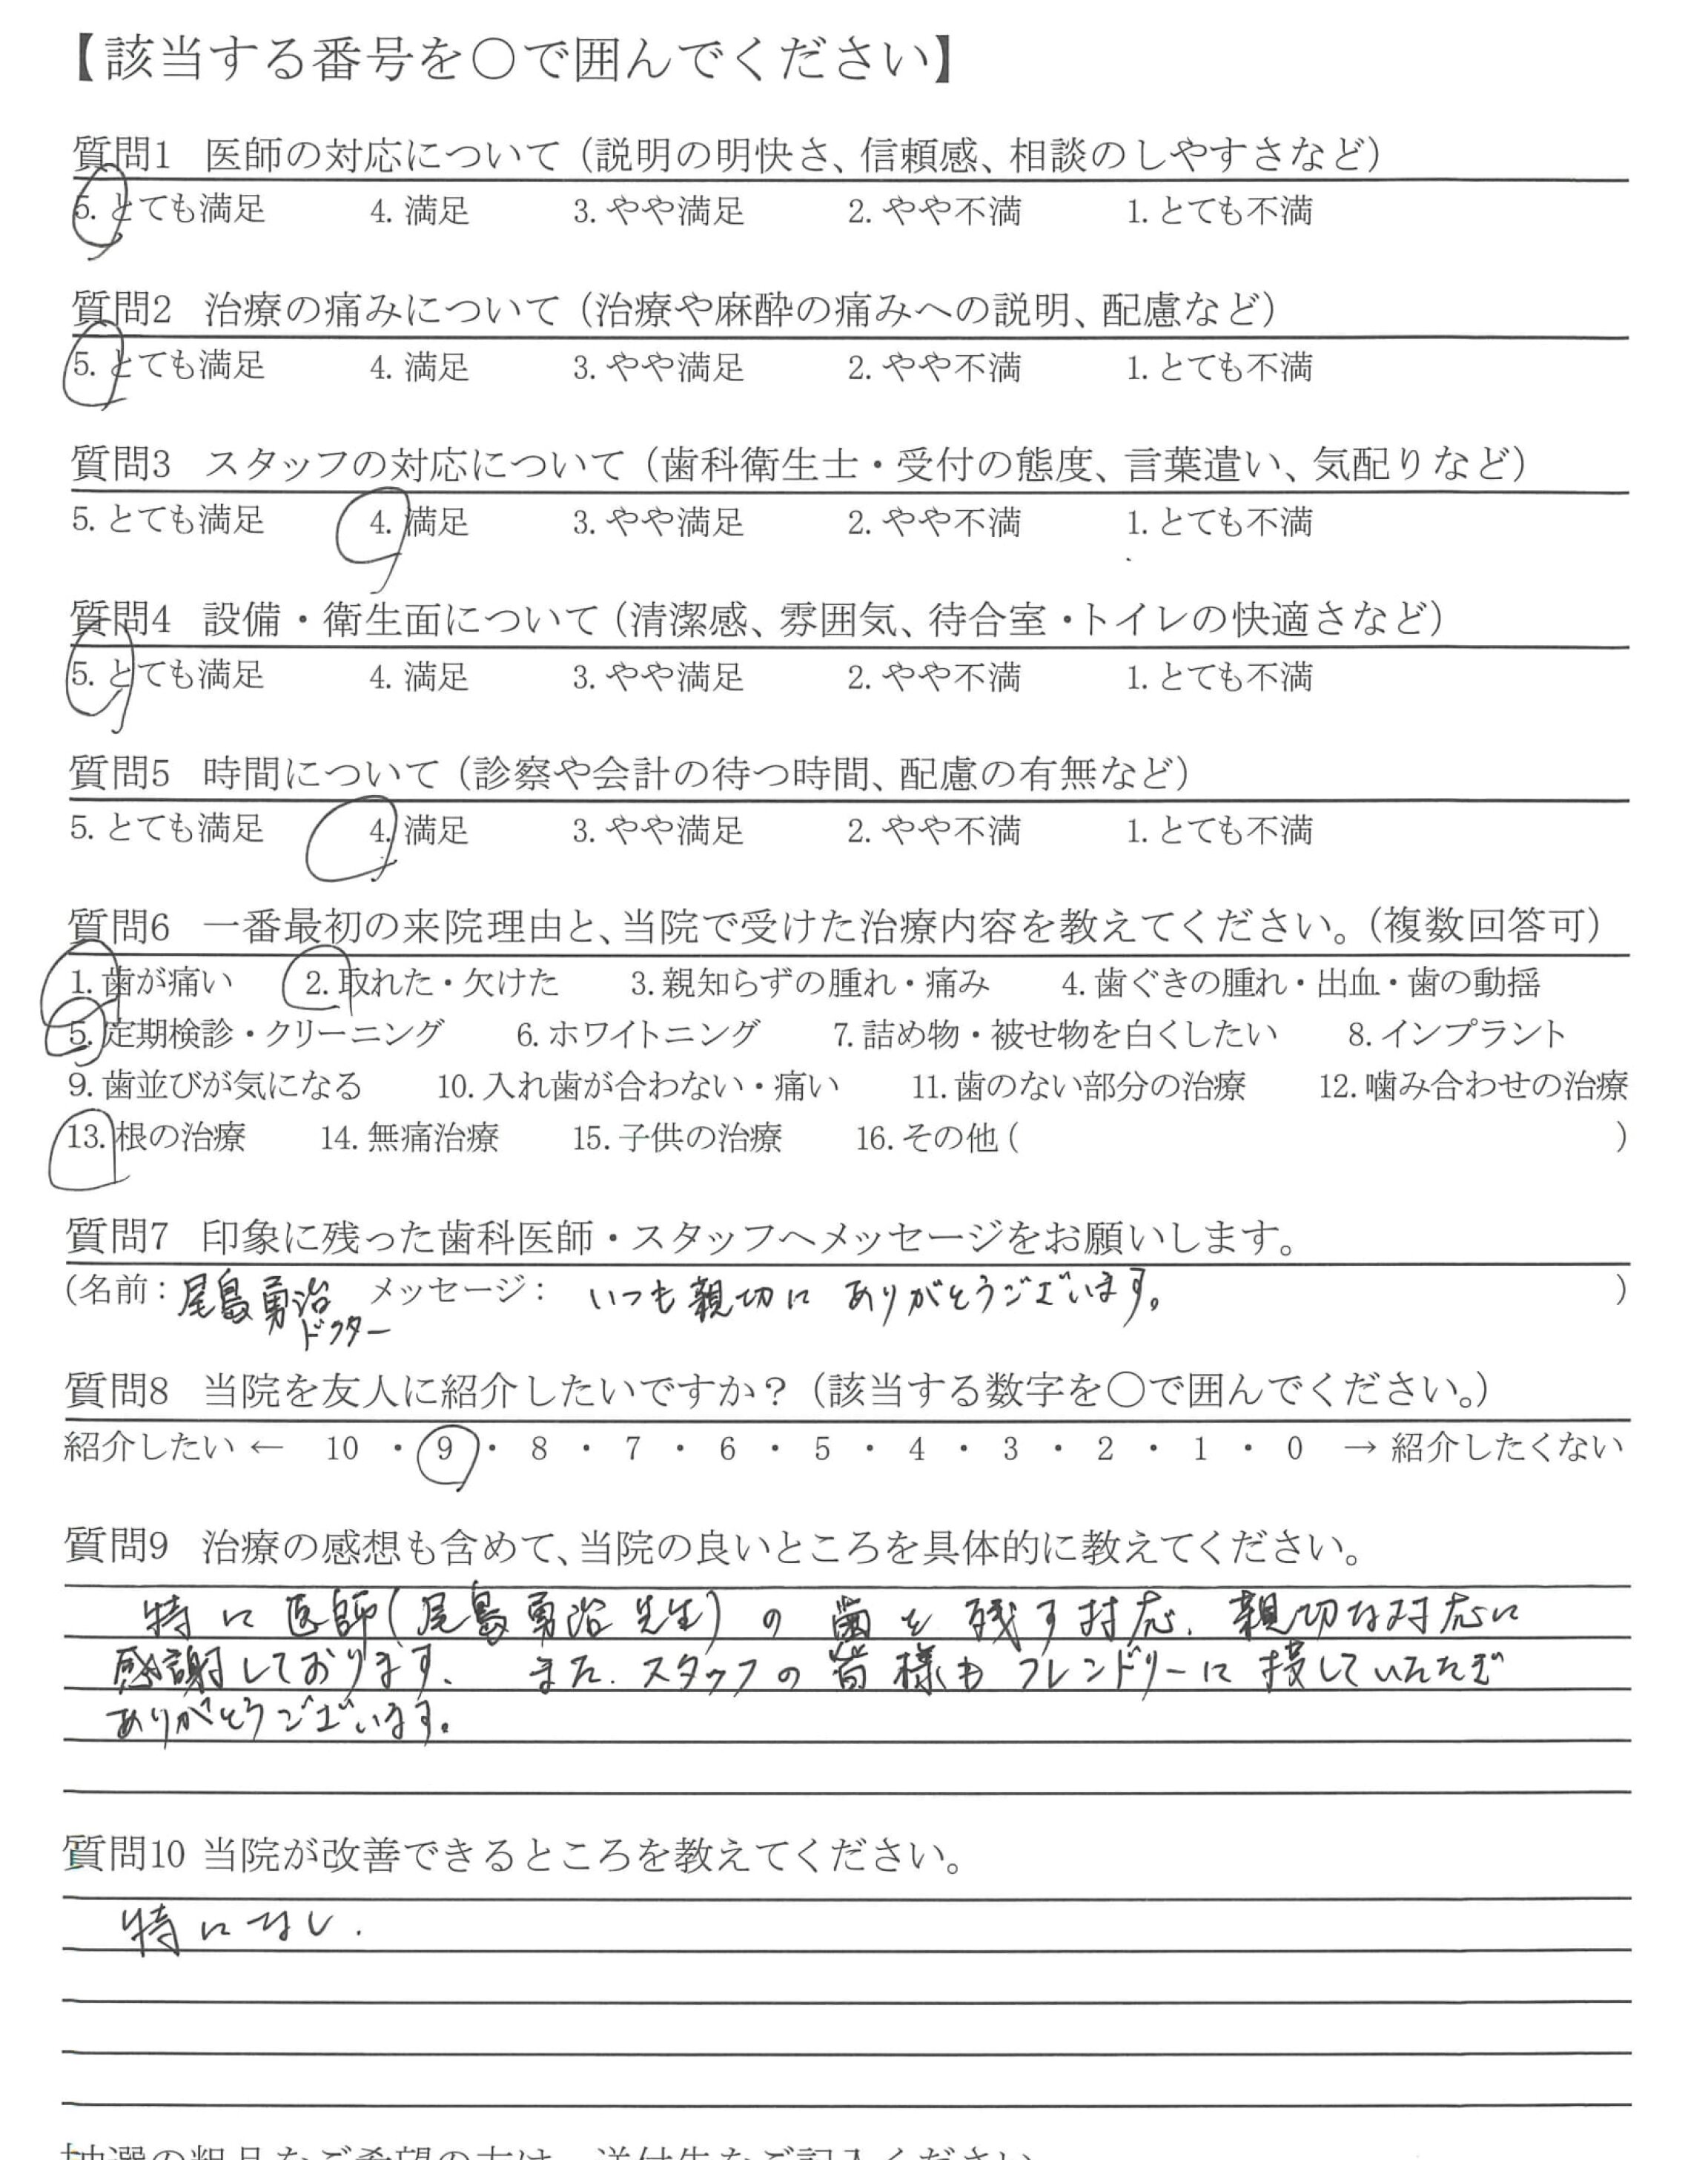 【該当する番号を○で囲んでください】
質問1 医師の対応について（説明の明快さ、信頼感、相談のしやすさなど）
5. とても満足 4. 満足 3. やや満足 2. やや不満 1. とても不満
質問2 治療の痛みについて（治療や麻酔の痛みへの説明、配慮など）
5. とても満足 4. 満足 3. やや満足 2. やや不満 1. とても不満
質問3 スタッフの対応について（歯科衛生士・受付の態度、言葉遣い、気配りなど）
5. とても満足 4. 満足 3. やや満足 2. やや不満 1. とても不満
質問4 設備・衛生面について（清潔感、雰囲気、待合室・トイレの快適さなど）
5. とても満足 4. 満足 3. やや満足 2. やや不満 1. とても不満
質問5 時間について（診察や会計の待つ時間、配慮の有無など）
5. とても満足 4. 満足 3. やや満足 2. やや不満 1. とても不満
質問6 一番最初の来院理由と、当院で受けた治療内容を教えてください。（複数回答可）
1. 歯が痛い 2. 取れた・欠けた 3. 親知らずの腫れ・痛み 4. 歯ぐきの腫れ・出血・歯の動揺
5. 定期検診・クリーニング 6. ホワイトニング 7. 詰め物・被せ物を白くしたい 8. インプラント
9. 歯並びが気になる 10. 入れ歯が合わない・痛い 11. 歯のない部分の治療 12. 噛み合わせの治療
13. 根の治療 14. 無痛治療 15. 子供の治療 16. その他（ ）
質問7 印象に残った歯科医師・スタッフへメッセージをお願いします。
（名前：尾島勇治 メッセージ： いつも親切に ありがとうございます。 ）
ドクター
質問8 当院を友人に紹介したいですか？（該当する数字を○で囲んでください。）
紹介したい ← 10 ・ 9 ・ 8 ・ 7 ・ 6 ・ 5 ・ 4 ・ 3 ・ 2 ・ 1 ・ 0 → 紹介したくない
質問9 治療の感想も含めて、当院の良いところを具体的に教えてください。
特に医師（尾島勇治先生）の歯を残す対応、親切な対応に
感謝しております。 また、スタッフの皆様もフレンドリーに接していただき
ありがとうございます。
質問10 当院が改善できるところを教えてください。
特になし．
抽選の粗品をご希望の方は、送付先をご記入ください